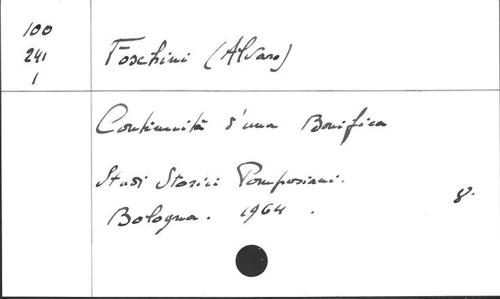 100
241
1
Foschini (Alvaro)
Continuità d'una Bonifica
Studi Storici Pomposiani.
Bologna. 1964.
8.